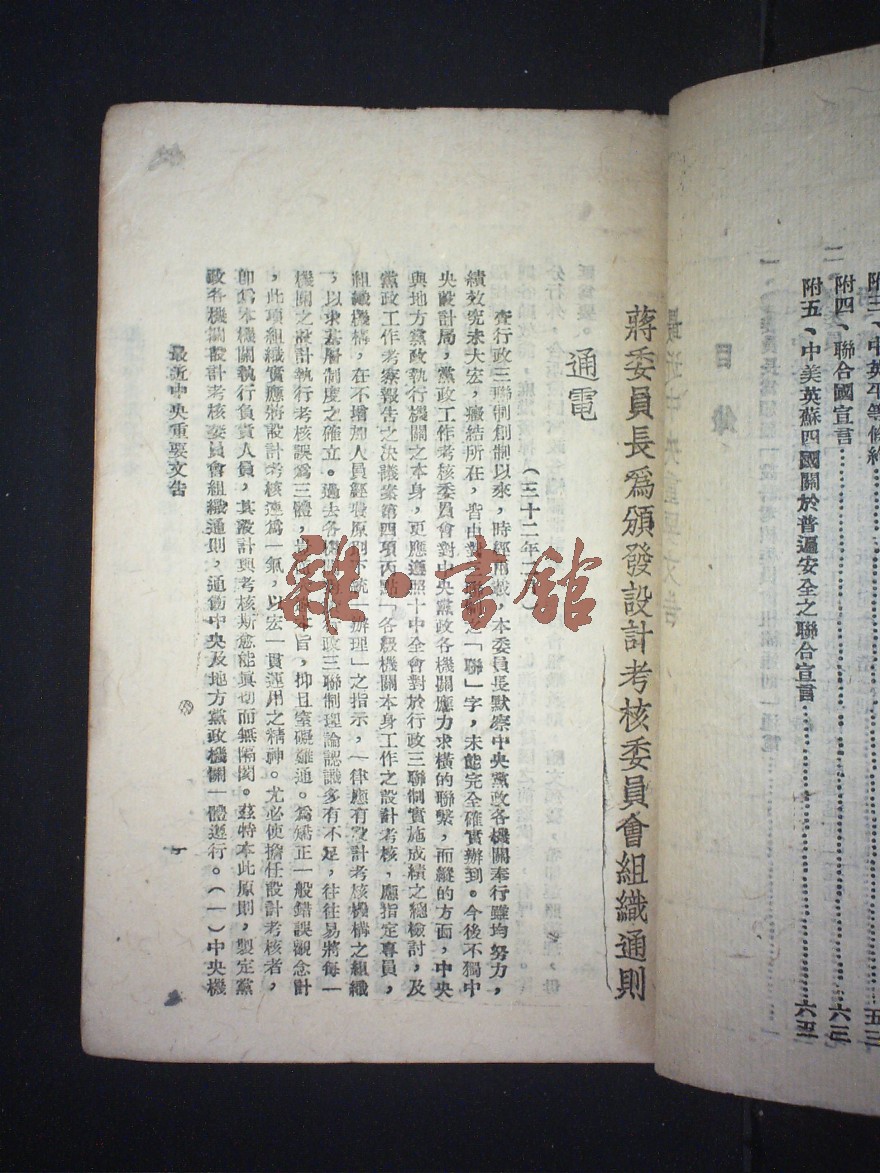 附三、中英平等條約……五三
附四、聯合國宣言……六三
附五、中美英蘇四國關於普遍安全之聯合宣言……六五
二
蔣委員長爲頒發設計考核委員會組織通則
通電
(三十二年二
查行政三聯制創制以來,時經兩載,本委員長默察中央黨政各機關奉行雖均努力,
績效究未大宏,癥結所在,皆由對三聯制之「聯」字,未能完全確實辦到。今後不獨中
央設計局,黨政工作考核委員會對中央黨政各機關應力求橫的聯繫,而縱的方面,中央
與地方黨政執行機關之本身,更應遵照十中全會對於行政三聯制實施成績之總檢討,及
黨政工作考察報告之決議案第四項丙點「各級機關本身工作之設計考核,應指定專員,
組織機構,在不增加人員經費原則下統一辦理」之指示,一律應有設計考核機構之組織
,以求基層制度之確立。過去各機關對行政三聯制理論認識多有不足,往往易將每一
機關之設計執行考核誤爲三體,旨,抑且窒礙難通。爲矯正一般錯誤觀念計
,此項組織實應將設計考核連爲一氣,以宏一貫運用之精神。尤必使擔任設計考核者,
卽爲本機關執行負責人員,其設計與考核斯愈能眞切而無隔閡。茲特本此原則,製定黨
政各機關設計考核委員會組織通則,通飭中央及地方黨政機關一體遵行。(一)中央機
最近中央重要文告
一
雜·書館